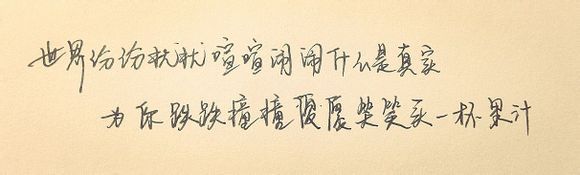 世界纷纷扰扰喧喧闹闹什么是真实
为你跌跌撞撞傻傻笑笑买一杯果汁